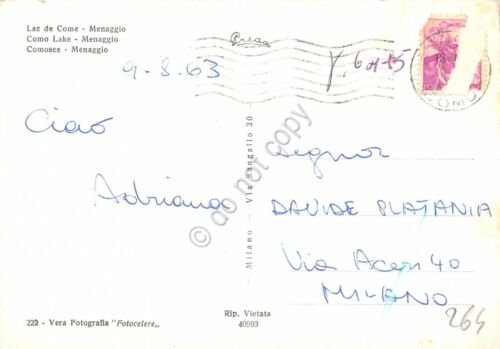 Lac de Come - Menaggio
Como Lake - Menaggio
Comosee - Menaggio
9-8.63
Ciao
Adriana
Milano - Via Sangallo 30
Signor
DAVIDE PLATANIA
Via 40
MILANO
264
222 - Vera Fotografia "Fotocelere„
Rip. Vietata
40993
do not copy